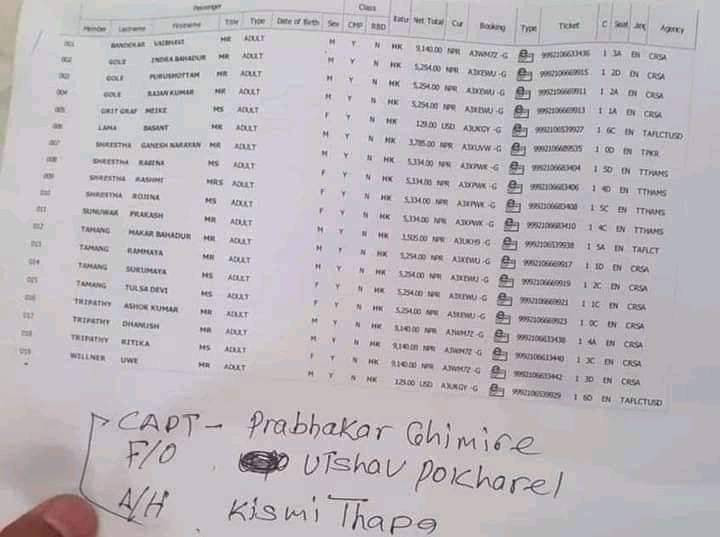 Passenger Class
Member Lastname Firstname Title Type Date of Birth Sex CMP RBD Estat Net Total Cur Booking Type Ticket C Seat Jnc Agency
001 BANDEKAR VAIBHAVI MR ADULT M Y N HK 9,140.00 NPR A3WM7Z -G 9992106633436 1 3A EN CRSA
002 GOLE INDRA BAHADUR MR ADULT M Y N HK 5,254.00 NPR A3XEWU -G 9992106669915 1 2D EN CRSA
003 GOLE PURUSHOTTAM MR ADULT M Y N HK 5,254.00 NPR A3XEWU -G 9992106669911 1 2A EN CRSA
004 GOLE RAJAN KUMAR MR ADULT M Y N HK 5,254.00 NPR A3XEWU -G 9992106669913 1 1A EN CRSA
005 GRIT GRAF MEIKE MS ADULT F Y N HK 129.00 USD A3UKGY -G 9992106539927 1 6C EN TAFLCTUSD
006 LAMA BASANT MR ADULT M Y N HK 3,785.00 NPR A3XUVW -G 9992106689535 1 0D EN TPKR
007 SHRESTHA GANESH NARAYAN MR ADULT M Y N HK 5,334.00 NPR A3XPWK -G 9992106683404 1 5D EN TTHAMS
008 SHRESTHA RABENA MS ADULT F Y N HK 5,334.00 NPR A3XPWK -G 9992106683406 1 4D EN TTHAMS
009 SHRESTHA RASHMI MRS ADULT F Y N HK 5,334.00 NPR A3XPWK -G 9992106683408 1 5C EN TTHAMS
010 SHRESTHA ROJINA MS ADULT F Y N HK 5,334.00 NPR A3XPWK -G 9992106683410 1 4C EN TTHAMS
011 SUNUWAR PRAKASH MR ADULT M Y N HK 3,505.00 NPR A3UKH9 -G 9992106539938 1 5A EN TAFLCT
012 TAMANG MAKAR BAHADUR MR ADULT M Y N HK 5,254.00 NPR A3XEWU -G 9992106669917 1 1D EN CRSA
013 TAMANG RAMMAYA MR ADULT Y N HK 5,254.00 NPR A3XEWU -G 9992106669919 1 2C EN CRSA
014 TAMANG SUKUMAYA MS ADULT F Y N HK 5,254.00 NPR A3XEWU -G 9992106669921 1 1C EN CRSA
015 TAMANG TULSA DEVI MS ADULT F Y N HK 5,254.00 NPR A3XEWU -G 9992106669923 1 0C EN CRSA
016 TRIPATHY ASHOK KUMAR MR ADULT M Y N HK 9,140.00 NPR A3WM7Z -G 9992106633438 1 4A EN CRSA
017 TRIPATHY DHANUSH MR ADULT M Y N HK 9,140.00 NPR A3WM7Z -G 9992106633440 1 3C EN CRSA
018 TRIPATHY RITIKA MS ADULT F Y N HK 9,140.00 NPR A3WM7Z -G 9992106633442 1 3D EN CRSA
019 WILLNER UWE MR ADULT M Y N HK 129.00 USD A3UKGY -G 9992106539929 1 6D EN TAFLCTUSD
CAPT - Prabhakar Ghimire
F/O Utshav Pokharel
A/H Kismi Thapa